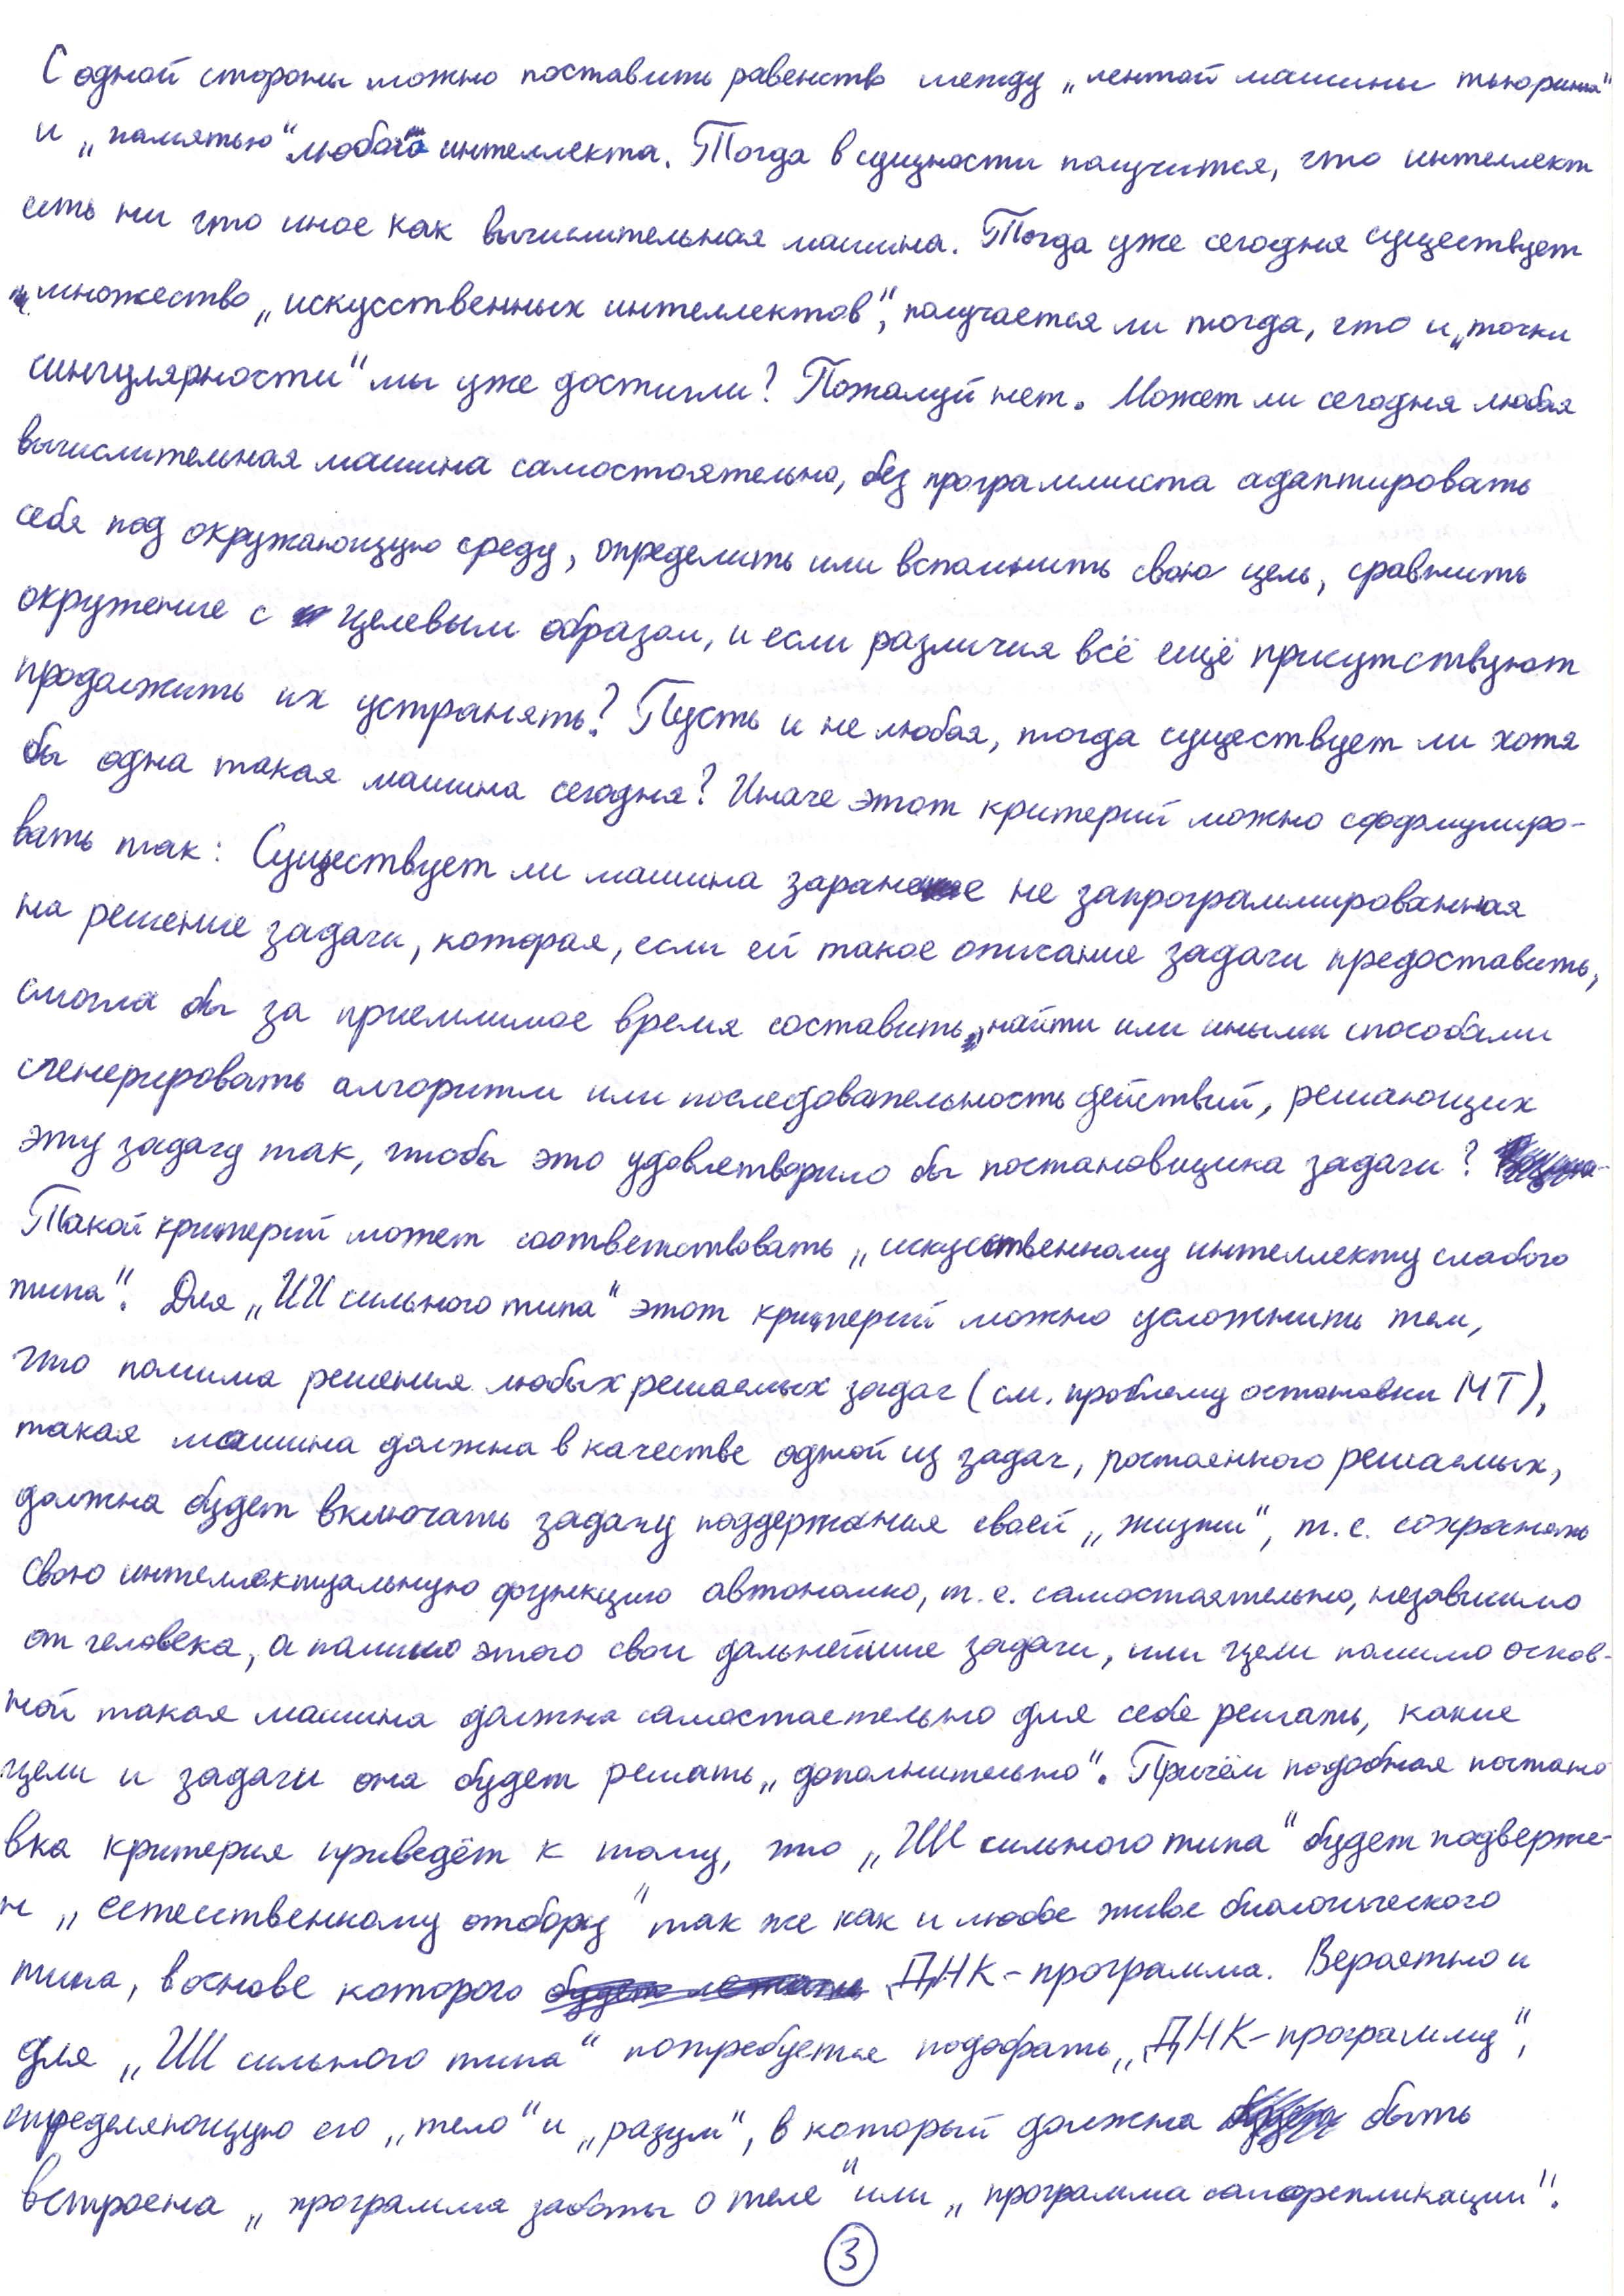 С одной стороны можно поставить равенство между „лентой машины тьюринга"
и „памятью" любого интеллекта. Тогда в сущности получится, что интеллект
есть ни что иное как вычислительная машина. Тогда уже сегодня существует
множество „искусственных интеллектов", получается ли тогда, что и „точки
сингулярности" мы уже достигли? Пожалуй нет. Может ли сегодня любая
вычислительная машина самостоятельно, без программиста адаптировать
себя под окружающую среду, определить или вспомнить свою цель, сравнить
окружение с целевым образом, и если различия всё ещё присутствуют
продолжить их устранять? Пусть и не любая, тогда существует ли хотя
бы одна такая машина сегодня? Иначе этот критерий можно сформулиро-
вать так: Существует ли машина заранее не запрограммированная
на решение задачи, которая, если ей такое описание задачи предоставить,
смогла бы за приемлимое время составить, найти или иными способами
сгенерировать алгоритм или последовательность действий, решающих
эту задачу так, чтобы это удовлетворило бы постановщика задачи?
Такой критерий может соответствовать „искусственному интеллекту слабого
типа". Для „ИИ сильного типа" этот критерий можно усложнить тем,
что помимо решения любых решаемых задач (см. проблему остановки МТ),
такая машина должна в качестве одной из задач, постоянного решаемых,
должна будет включать задачу поддержания своей „жизни", т.е. сохранять
свою интеллектуальную функцию автономно, т.е. самостоятельно, независимо
от человека, а помимо этого свои дальнейшие задачи, или цели помимо основ-
ной такая машина должна самостоятельно для себя решать, какие
цели и задачи она будет решать „дополнительно". Причём подобная постано
вка критерия приведёт к тому, что „ИИ сильного типа" будет подверже-
н „естественному отбору" так же как и любое живое биологического
типа, в основе которого ДНК-программа. Вероятно и
для „ИИ сильного типа" потребуется подобрать „ДНК-программу",
определяющую его „тело" и „разум", в который должна быть
встроена „программа заботы о теле" или „программа саморепликации".
3